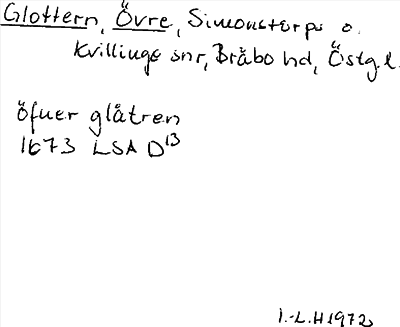 Glottern, Övre, Simonstorps o.
Kvillinge snr, Bråbo hd, Östg.l.
öfuer glåtren
1673 LSA D13
I.-L.H 1972